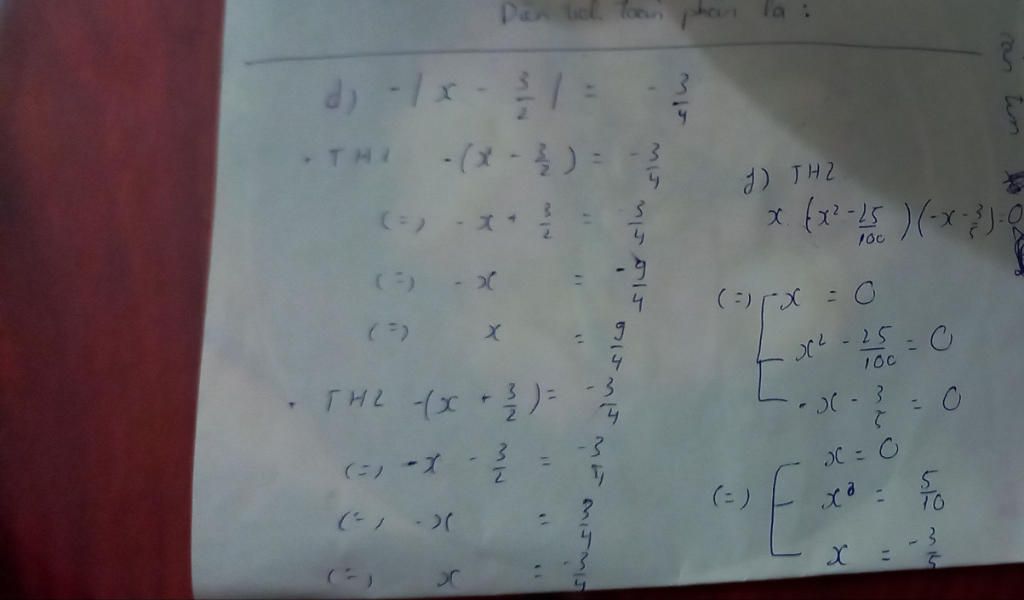 Diện tích toàn phần là :
d) -|x - 3/2| = -3/4
. TH1 -(x - 3/2) = -3/4
(=) -x + 3/2 = -3/4
(=) -x = -9/4
(=) x = 9/4
. TH2 -(x + 3/2) = -3/4
(=) -x - 3/2 = -3/4
(=) -x = 3/4
(=) x = -3/4
f) TH2
x.(x² - 25/100)(-x - 3/5) = 0
(=) [ -x = 0
x² - 25/100 = 0
-x - 3/5 = 0
(=) [ x = 0
x = 5/10
x = -3/5